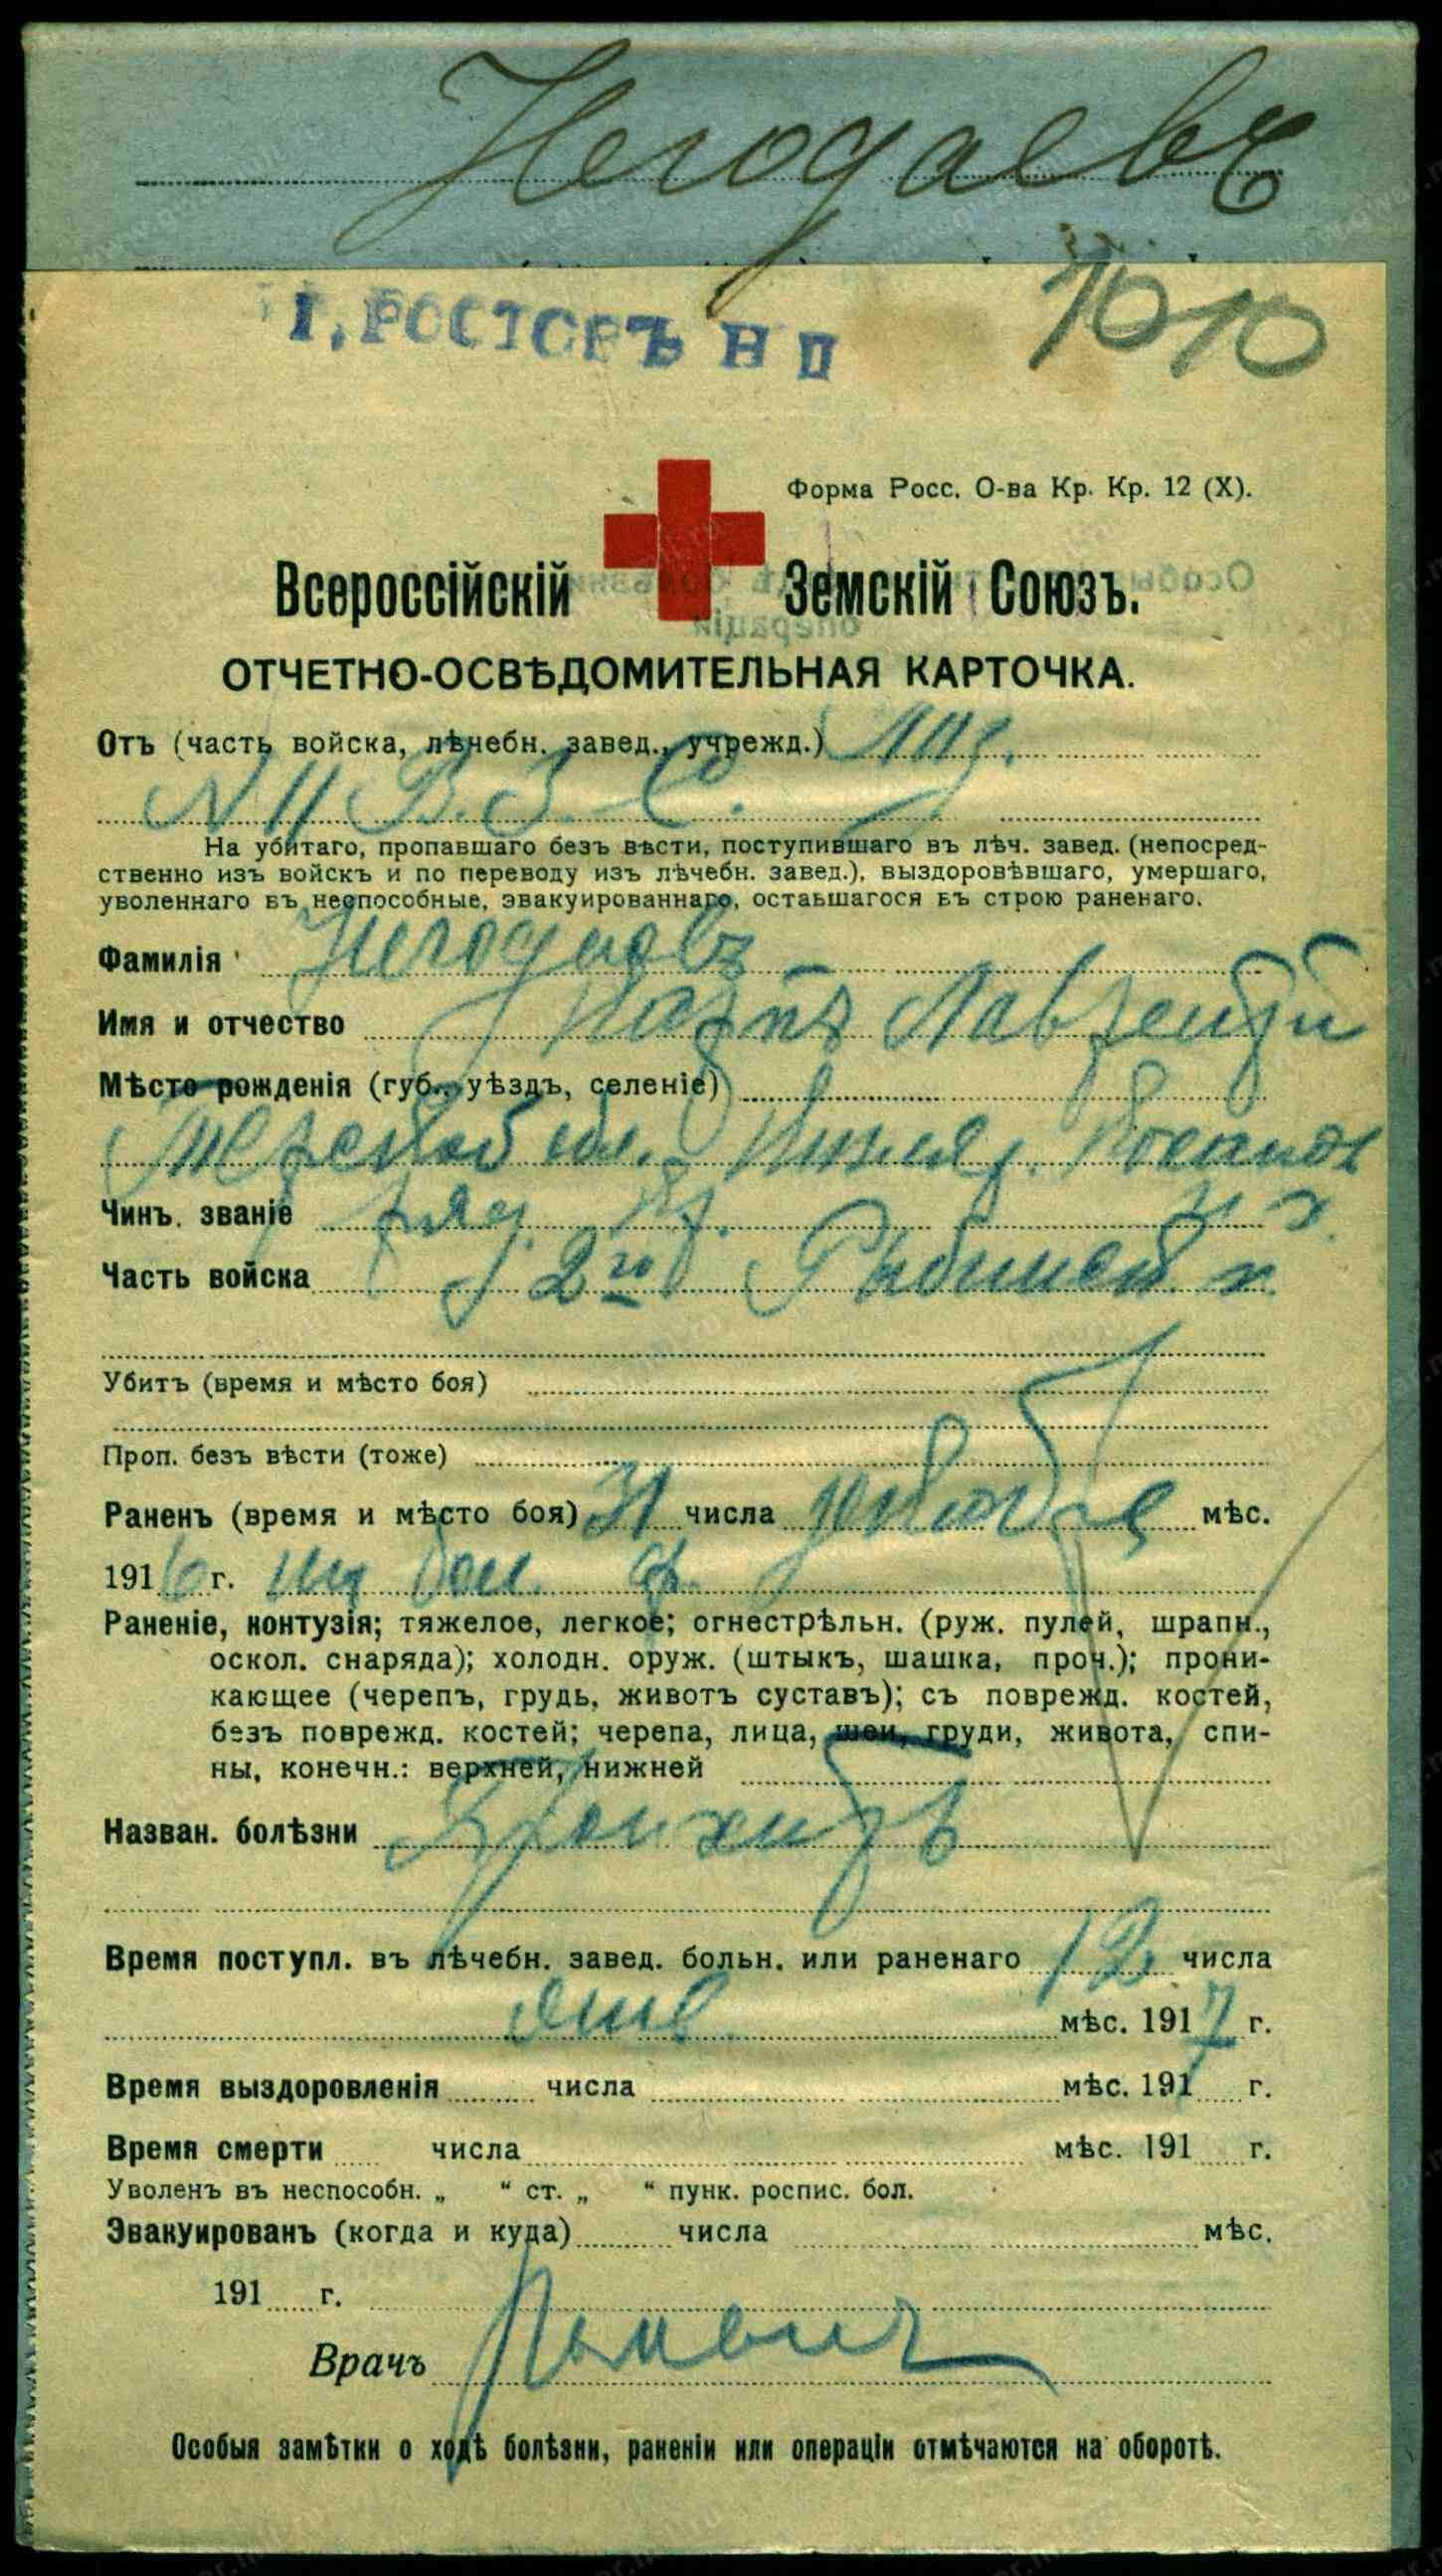 Негодаевъ
Г. РОСТОВЪ Н Д
7010
Форма Росс. О-ва Кр. Кр. 12 (X).
Всероссійскій Земскій Союзъ.
ОТЧЕТНО-ОСВѢДОМИТЕЛЬНАЯ КАРТОЧКА.
Отъ (часть войска, лѣчебн. завед., учрежд.)
В. З. С.
На убитаго, пропавшаго безъ вѣсти, поступившаго въ лѣч. завед. (непосред-
ственно изъ войскъ и по переводу изъ лѣчебн. завед.), выздоровѣвшаго, умершаго,
уволеннаго въ неспособные, эвакуированнаго, оставшагося въ строю раненаго.
Фамилія Негодаевъ
Имя и отчество Карпъ Лаврентій
Мѣсто рожденія (губ., уѣздъ, селеніе)
Терской обл.
Чинъ, званіе ряд.
Часть войска 2го п.
Убитъ (время и мѣсто боя)
Проп. безъ вѣсти (тоже)
Раненъ (время и мѣсто боя) 31 числа октября мѣс.
1916 г.
Раненіе, контузія; тяжелое, легкое; огнестрѣльн. (руж. пулей, шрапн.,
оскол. снаряда); холодн. оруж. (штыкъ, шашка, проч.); прони-
кающее (черепъ, грудь, животъ суставъ); съ поврежд. костей,
безъ поврежд. костей; черепа, лица, шеи, груди, живота, спи-
ны, конечн.: верхней, нижней
Назван. болѣзни Бронхитъ
Время поступл. въ лѣчебн. завед. больн. или раненаго 12 числа
янв. мѣс. 1917 г.
Время выздоровленія числа мѣс. 191 г.
Время смерти числа мѣс. 191 г.
Уволенъ въ неспособн. „ “ ст. „ “ пунк. роспис. бол.
Эвакуированъ (когда и куда) числа мѣс.
191 г.
Врачъ
Особыя замѣтки о ходѣ болѣзни, раненіи или операціи отмѣчаются на оборотѣ.